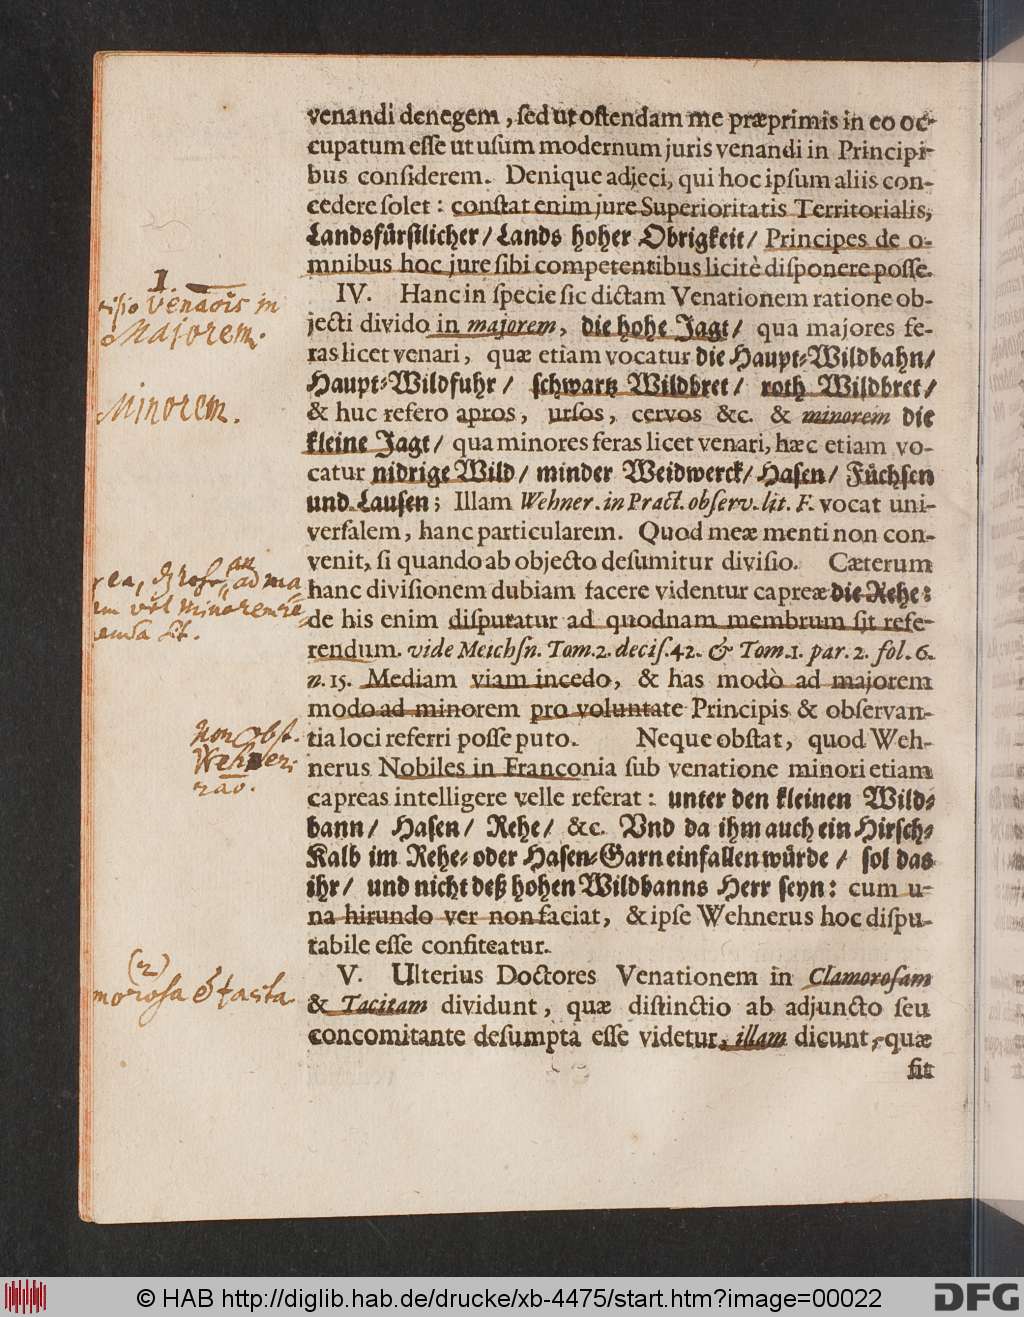 venandi denegem, ſed ut oſtendam me præprimis in eo oc-
cupatum eſſe ut uſum modernum juris venandi in Principi-
bus conſiderem. Denique adjeci, qui hoc ipſum aliis con-
cedere ſolet: conſtat enim jure Superioritatis Territorialis,
Landsfürſtlicher/ Lands hoher Obrigkeit/ Principes de o-
mnibus hoc jure ſibi competentibus licitè diſponere poſſe.
IV. Hanc in ſpecie ſic dictam Venationem ratione ob-
jecti divido in majorem, die hohe Jagt/ qua majores fe-
ras licet venari, quæ etiam vocatur die Haupt-Wildbahn/
Haupt-Wildfuhr/ ſchwartz Wildbret/ roth Wildbret/
& huc refero apros, urſos, cervos &c. & minorem die
kleine Jagt/ qua minores feras licet venari, hæc etiam vo-
catur nidrige Wild/ minder Weidwerck/ Haſen/ Füchſen
und Lauſen; Illam Wehner. in Pract. obſerv. lit. F. vocat uni-
verſalem, hanc particularem. Quod meæ menti non con-
venit, ſi quando ab objecto deſumitur diviſio. Cæterum
hanc diviſionem dubiam facere videntur capreæ die Rehe:
de his enim diſputatur ad quodnam membrum ſit refe-
rendum. vide Meichſn. Tom. 2. deciſ. 42. & Tom. 1. par. 2. fol. 6.
n. 15. Mediam viam incedo, & has modò ad majorem
modo ad minorem pro voluntate Principis & obſervan-
tia loci referri poſſe puto. Neque obſtat, quod Weh-
nerus Nobiles in Franconia ſub venatione minori etiam
capreas intelligere velle referat: unter den kleinen Wild-
bann/ Haſen/ Rehe/ &c. Und da ihm auch ein Hirſch-
Kalb im Rehe- oder Haſen-Garn einfallen würde/ ſol das
ihr/ und nicht deß hohen Wildbanns Herr ſeyn: cum u-
na hirundo ver non faciat, & ipſe Wehnerus hoc diſpu-
tabile eſſe confiteatur.
V. Ulterius Doctores Venationem in Clamoroſam
& Tacitam dividunt, quæ diſtinctio ab adjuncto ſeu
concomitante deſumpta eſſe videtur, illam dicunt, quæ
ſit
1.
in
Majorem.
Minorem.
ad ma
vel minorem re
ſit.
non obſt.
Wehner
(2)
moroſa & tacita
© HAB http://diglib.hab.de/drucke/xb-4475/start.htm?image=00022
DFG